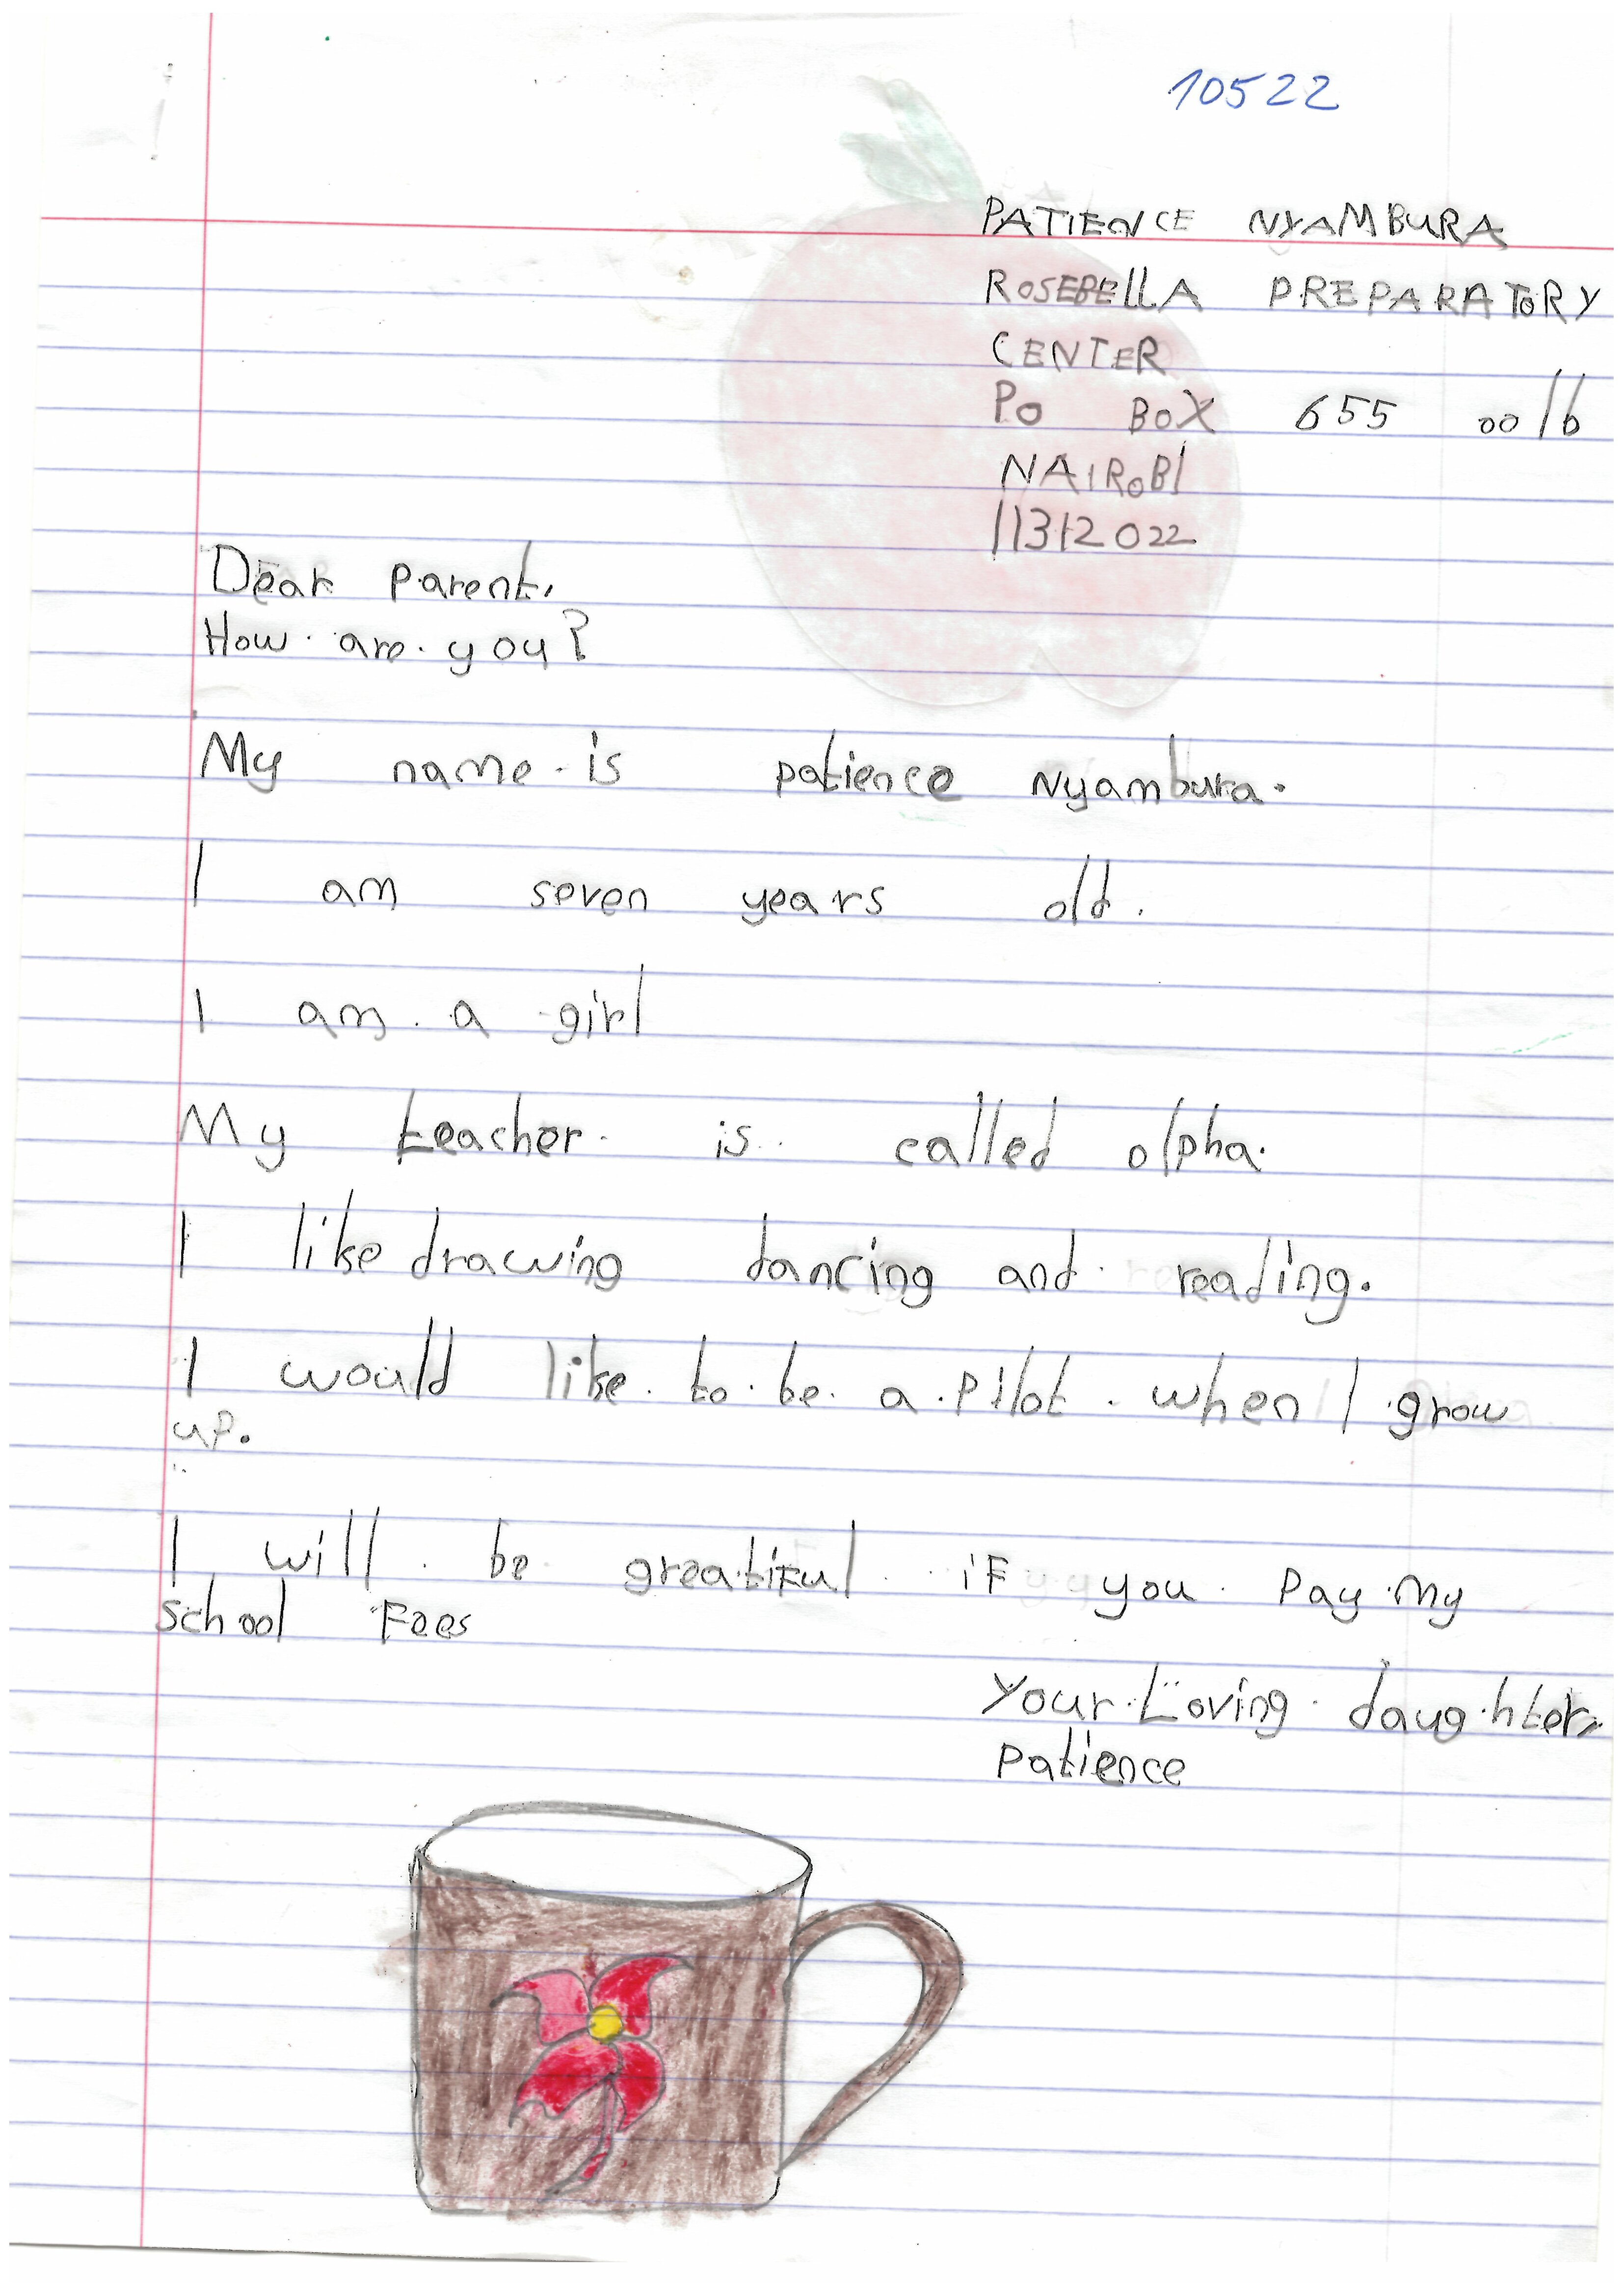 10522
PATIENCE NYAMBURA
ROSEBELLA PREPARATORY
CENTER
PO BOX 655 0016
NAIROBI
11312022
Dear parent,
How are you?
My name is patience Nyambura.
I am seven years old.
I am a girl
My teacher is called alpha.
I like drawing dancing and reading.
I would like to be a pilot when I grow
up.
I will be greatiful if you Pay My
school Fees
your Loving daughter
patience